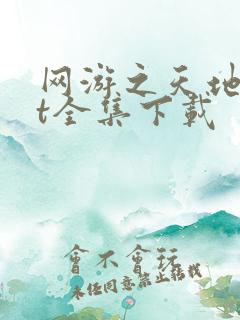 网游之天地
t全集下载
會不會玩
未经同意禁止转载